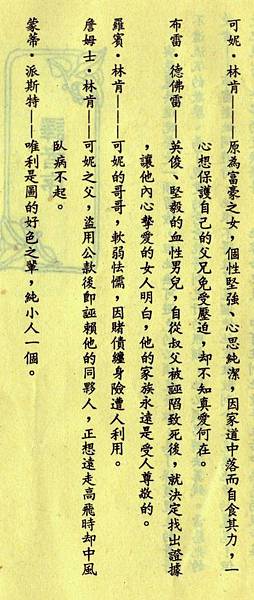 可妮·林肯——原為富豪之女，個性堅強、心思純潔，因家道中落而自食其力，一
心想保護自己的父兄免受壓迫，却不知真愛何在。
布雷·德佛雷——英俊、堅毅的血性男兒，自從叔父被誣陷致死後，就決定找出證據
，讓他內心摯愛的女人明白，他的家族永遠是受人尊敬的。
羅賓·林肯——可妮的哥哥，軟弱怯懦，因賭債纏身險遭人利用。
詹姆士·林肯——可妮之父，盜用公款後即誣賴他的同夥人，正想遠走高飛時却中風
臥病不起。
蒙蒂·派斯特——唯利是圖的好色之輩，純小人一個。